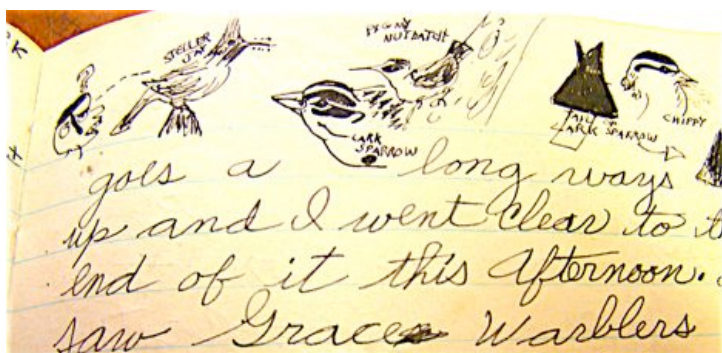 STELLER
JAY
PYGMY
NUTHATCH
LARK
SPARROW
TAIL OF
LARK SPARROW
CHIPPY
goes a long ways
up and I went clear to
end of it this afternoon.
saw Graces Warblers